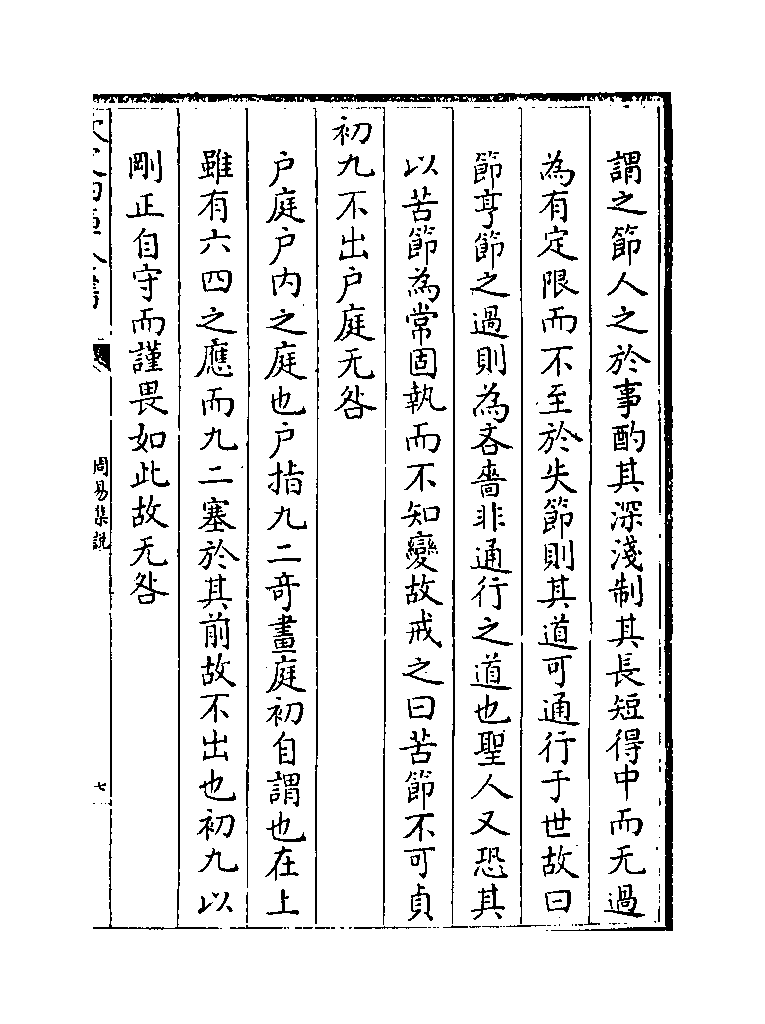 謂之節人之於事酌其深淺制其長短得中而无過
為有定限而不至於失節則其道可通行于世故曰
節亨節之過則為吝嗇非通行之道也聖人又恐其
以苦節為常固執而不知變故戒之曰苦節不可貞
初九不出户庭无咎
户庭户内之庭也户指九二奇畫庭初自謂也在上
雖有六四之應而九二塞於其前故不出也初九以
剛正自守而謹畏如此故无咎
周易集説
七